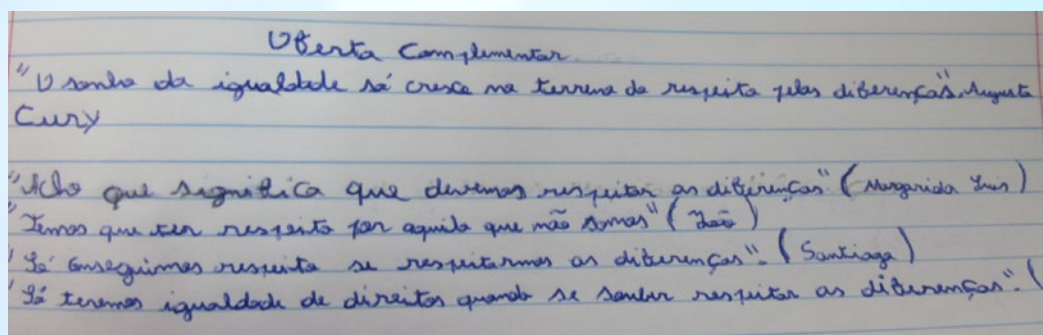 Oferta Complementar.
"O sonho da igualdade só cresce no terreno do respeito pelas diferenças". Augusto
Cury
"Acho que significa que devemos respeitar as diferenças" (Margarida Luis)
"Temos que ter respeito por aquilo que não somos" (João)
"Só conseguimos respeito se respeitarmos as diferenças". (Santiago)
"Só teremos igualdade de direitos quando se souber respeitar as diferenças". (